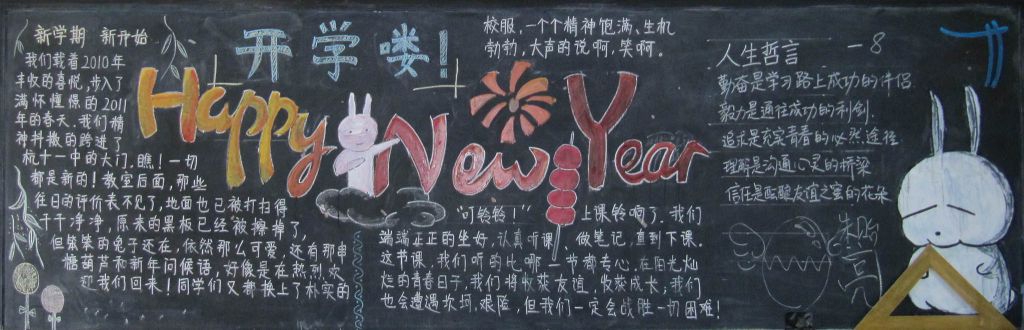 新学期 新开始
我们载着2010年
丰收的喜悦,步入了
满怀憧憬的2011
年的春天。我们精
神抖擞的跨进了
杭十一中的大门。瞧!一切
都是新的!教室后面,那些
往日的评价表不见了,地面也已被打扫得
干干净净,原来的黑板已经被擦掉了,
但紫紫的兔子还在,依然那么可爱,还有那串
糖葫芦和新年问候语,好像是在热烈欢
迎我们回来!同学们又都换上了朴实的
开学喽!
校服,一个个精神饱满、生机
勃勃,大声的说啊,笑啊。
Happy New Year
"叮铃铃!" 上课铃响了,我们
端端正正的坐好,认真听课、做笔记,直到下课。
这节课,我们听的比哪一节都专心,在阳光灿
烂的青春日子,我们将收获友谊,收获成长;我们
也会遭遇坎坷、艰险,但我们一定会战胜一切困难!
人生哲言 一8
勤奋是学习路上成功的伴侣
毅力是通往成功的利剑
追求是充实青春的必然途径
理解是沟通心灵的桥梁
信任是友谊之花朵